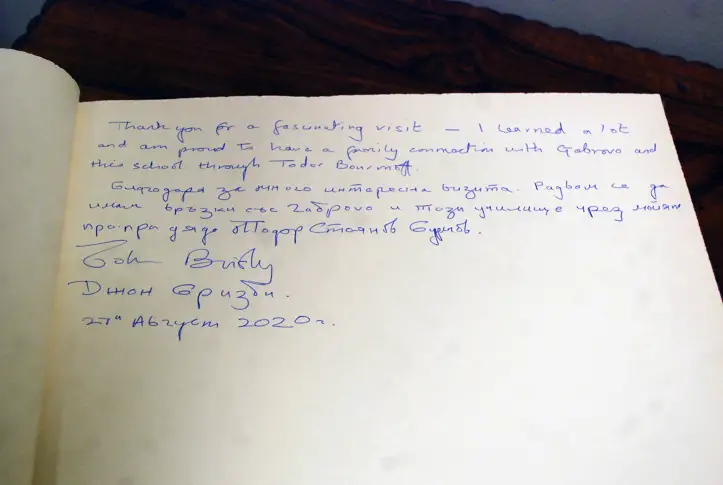 Thank you for a fascinating visit – I learned a lot
and am proud to have a family connection with Gabrovo and
this school through Todor Bourmoff.
Благодаря за много интересна визита. Радвам се да
имам връзки със Габрово и този училище чрез моят
пра-пра дядо Тодор Стоянов Бурмов.
John
Джон Бризби.
27ª Август 2020г.